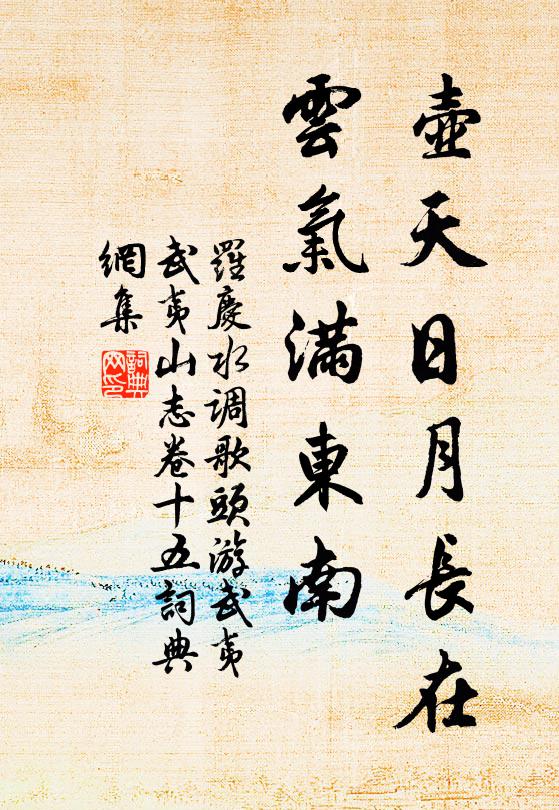 壺天日月長在
雲氣滿東南
羅慶水調歌頭游武夷
武夷山志卷十五詞典
網集
詞典
网印